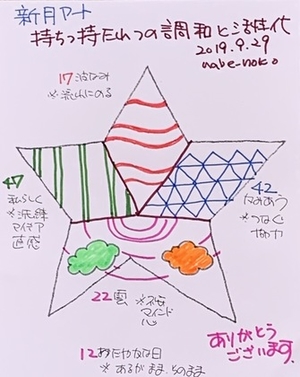 新月アート
持ちつ持たれつの調和と活性化
2019.9.29
nabe-noko
17 波なみ
※流れにのる
47
私らしく
※洗練
アイデア
直感
42
かみあう
※つなぐ
22 雲
※
マインド
心
12 あたたかな日
※あるがまま
ありがとう
ございます